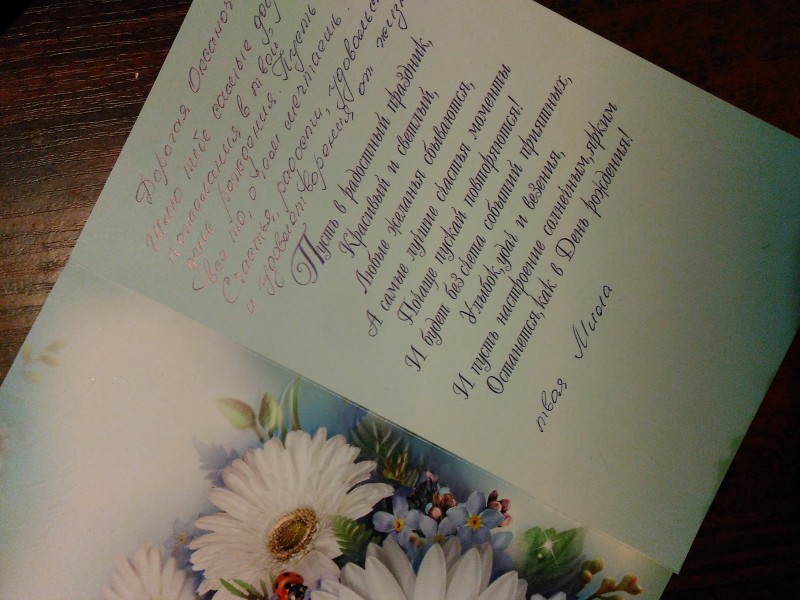 Дорогая Оксаночка
Шлю тебе самые
пожелания в твой
день рождения. Пусть
все то, о чем мечтаешь.
Счастья, радости,
и удовлетворения от
Пусть в радостный праздник,
Красивый и светлый,
Любые желанья сбываются,
А самые лучшие счастья моменты
Почаще пускай повторяются!
И будет без счета событий приятных,
Улыбок, удач и везения,
И пусть настроение солнечным, ярким
Останется, как в День рождения!
твоя Мила